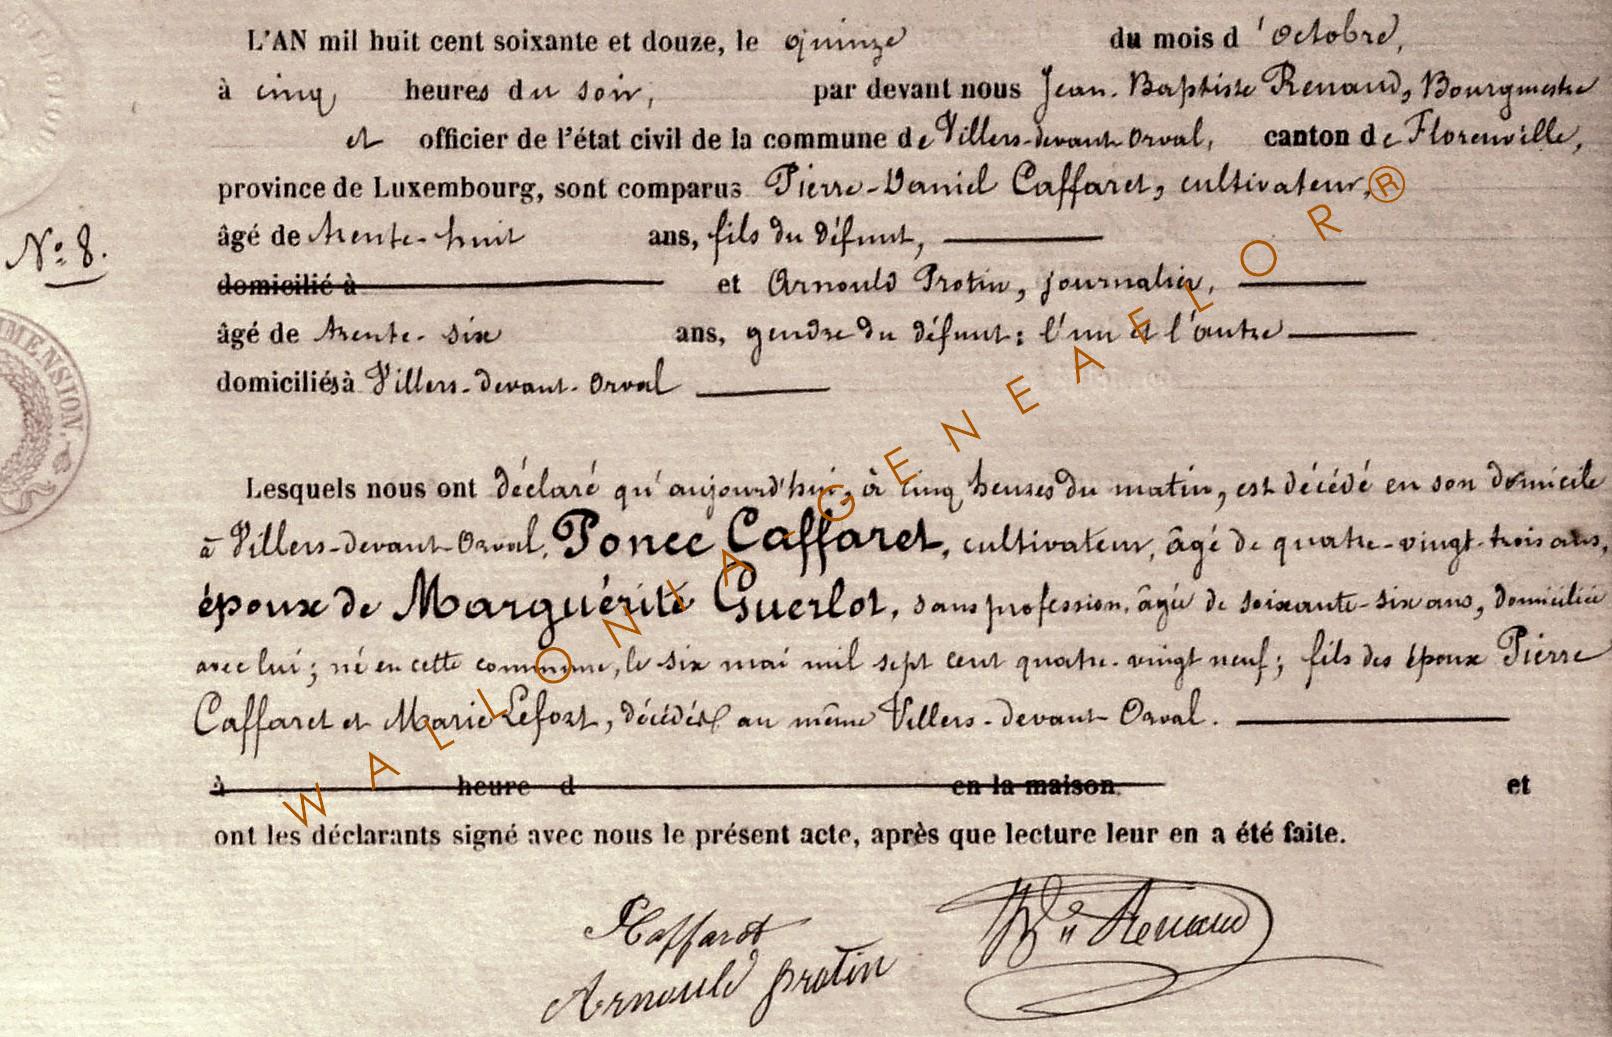 L'AN mil huit cent soixante et douze, le quinze du mois d'Octobre,
à cinq heures du soir, par devant nous Jean-Baptiste Renaud, Bourgmestre
et officier de l'état civil de la commune de Villers-devant-Orval, canton de Florenville,
province de Luxembourg, sont comparus Pierre-Daniel Caffaret, cultivateur,
N° 8.
âgé de trente-huit ans, fils du défunt,
domicilié à et Arnould Protin, journalier,
âgé de trente-six ans, gendre du défunt: l'un et l'autre
domiciliés à Villers-devant-Orval
MENSION.
Lesquels nous ont déclaré qu'aujourd'hui, à cinq heures du matin, est décédé en son domicile
à Villers-devant-Orval, Ponce Caffaret, cultivateur, âgé de quatre-vingt-trois ans,
époux de Marguérite Guerlot, sans profession, âgée de soixante-six ans, domiciliée
avec lui; né en cette commune, le six mai mil sept cent quatre-vingt neuf; fils des époux Pierre
Caffaret et Marie Lefort, décédés au même Villers-devant-Orval.
à heure d en la maison et
ont les déclarants signé avec nous le présent acte, après que lecture leur en a été faite.
Caffaret
Arnould Protin
Renaud
WALLONIA-GENEAFLOR®